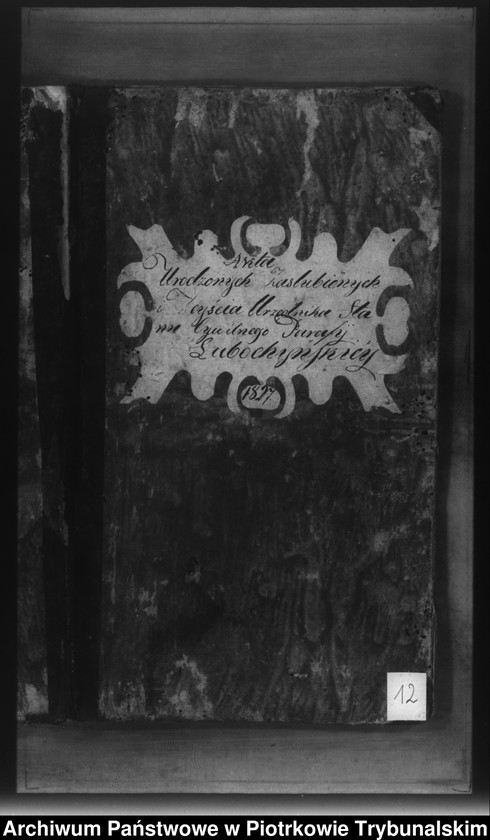 Akta
Urodzonych Zaslubionych
i Zeyścia Urzędnika Sta
nu Cywilnego Parafij
Lubochyńskiey
1827
12
Archiwum Państwowe w Piotrkowie Trybunalskim